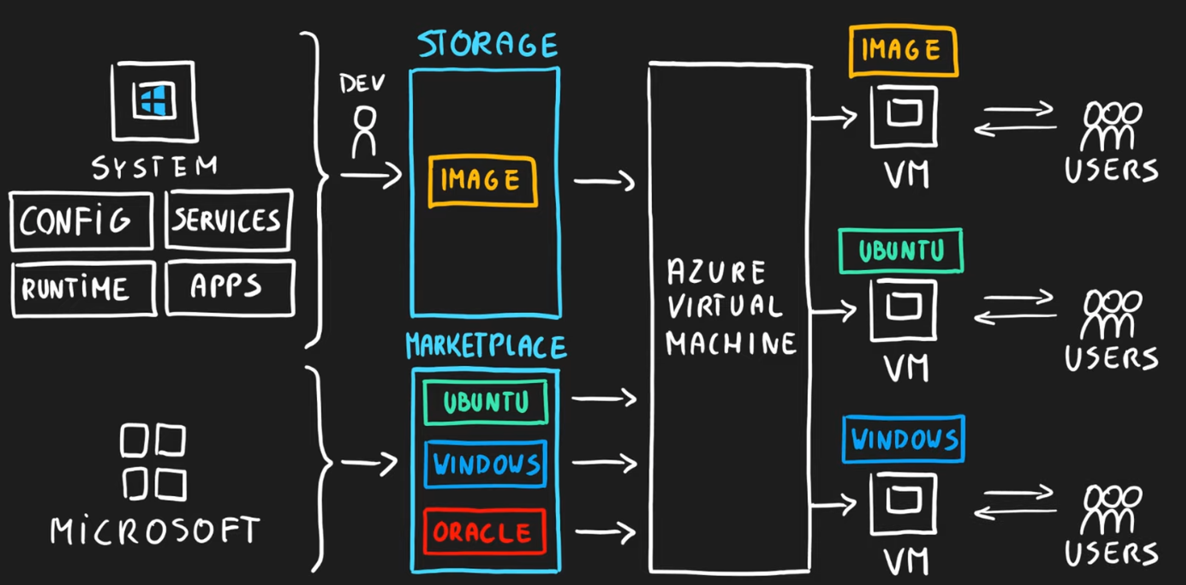 SYSTEM
CONFIG
SERVICES
RUNTIME
APPS
MICROSOFT
DEV
STORAGE
IMAGE
MARKETPLACE
UBUNTU
WINDOWS
ORACLE
AZURE
VIRTUAL
MACHINE
IMAGE
VM
USERS
UBUNTU
VM
USERS
WINDOWS
VM
USERS